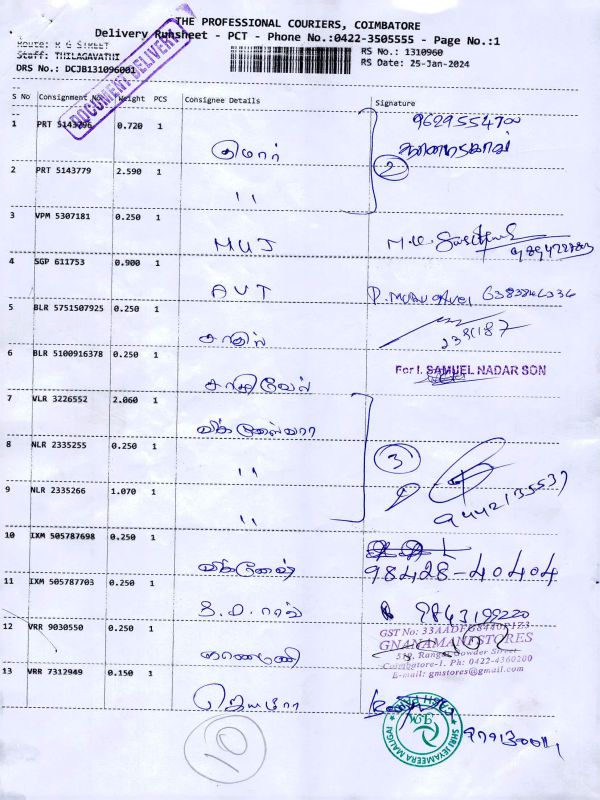 THE PROFESSIONAL COURIERS, COIMBATORE
Delivery Runsheet - PCT - Phone No.:0422-3505555 - Page No.:1
Route: R G STREET
Staff: THILAGAVATHI
DRS No.: DCJB131096001
RS No.: 1310960
RS Date: 25-Jan-2024
DOCUMENT DELIVERY
S No Consignment No. Weight PCS Consignee Details Signature
1 PRT 5143796 0.720 1 குமார் 9629554700
2 PRT 5143779 2.590 1 " 2
3 VPM 5307181 0.250 1 MUJ M.K.
4 SGP 611753 0.900 1 AVT P. Murugavel 6383846336
5 BLR 5751507925 0.250 1 238187
6 BLR 5100916378 0.250 1 சக்திவேல் For I. SAMUEL NADAR SON
7 VLR 3226552 2.060 1
8 NLR 2335255 0.250 1 " 3
9 NLR 2335266 1.070 1 " 9442135537
10 IXM 505787698 0.250 1 98428-40404
11 IXM 505787703 0.250 1 9843199220
12 VRR 9030550 0.250 1 ஞானமணி
GNANAMANI STORES
519, Rangai Gowder Street
Coimbatore-1. Ph: 0422-4360200
E-mail: gmstores@gmail.com
13 VRR 7312949 0.150 1 ஜெயமீரா
SHRI JEYAMEERA MALIGAI
10